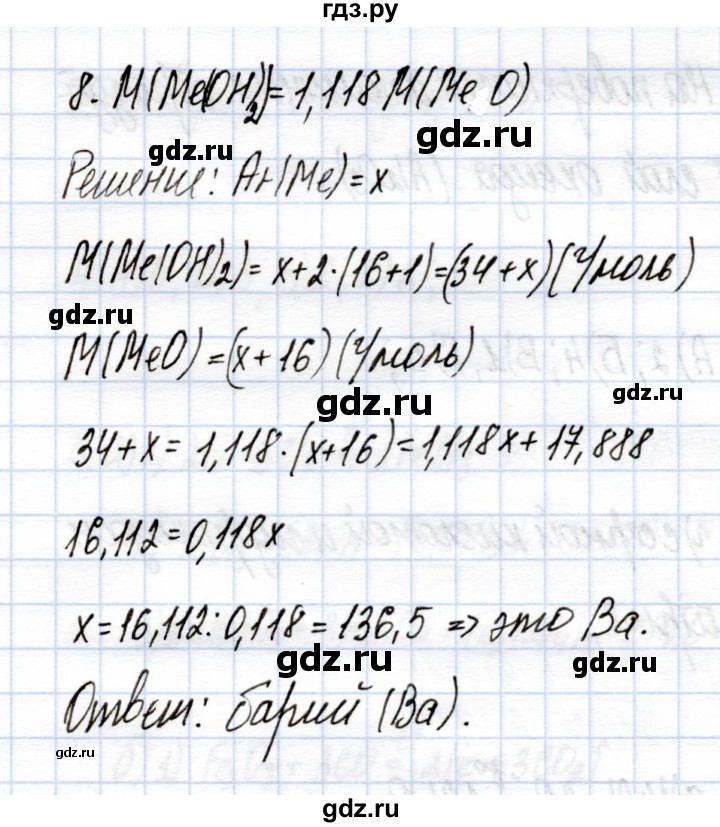 гдз.ру
8. M(Me(OH)₂)=1,118 M(MeO)
gdz.ru
gdz.ru
Решение: Ar(Me)=x
gdz.ru
M(Me(OH)₂)=x+2·(16+1)=(34+x)(г/моль)
gdz.ru
gdz.ru
M(MeO)=(x+16)(г/моль)
gdz.ru
gdz.ru
34+x=1,118·(x+16)=1,118x+17,888
gdz.ru
16,112=0,118x
gdz.ru
x=16,112:0,118=136,5 => это Ba.
gdz.ru
gdz.ru
Ответ: барий (Ba).
gdz.ru
gdz.ru
gdz.ru